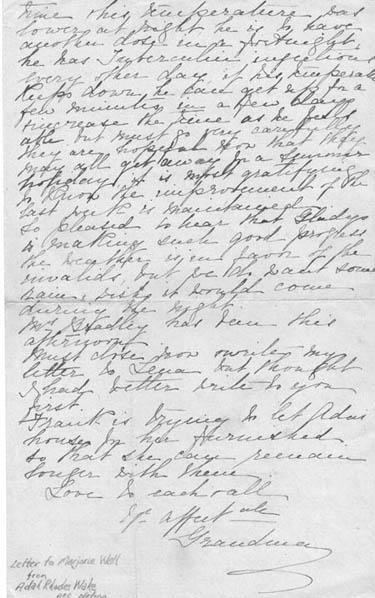 time his temperature was
lower at night he is to have
another dose in a fortnight,
he has Tuberculin injections
every other day, if his temperature
keeps down he can get up for a
few minutes in a few days
& increase the time as he feels
able but must go very carefully
they are hopeful now that they
may all get away for a summer
holiday, it is most gratifying
to know the improvement of the
last week is maintained.
So pleased to hear that Gladys
is making such good progress
the weather is in favor of the
invalids, but we do want some
rain, wish it would come
during the night.
Mrs Bradley has been this
afternoon
Must close now & write my
letter to but thought
I had better write to you
first.
Frank is trying to let Ada's
house for her furnished
so that she can remain
longer with them.
Love to each & all
Yr affect ate
Grandma
Letter to Marjorie Well
from
Adah Rhodes Wake
nee